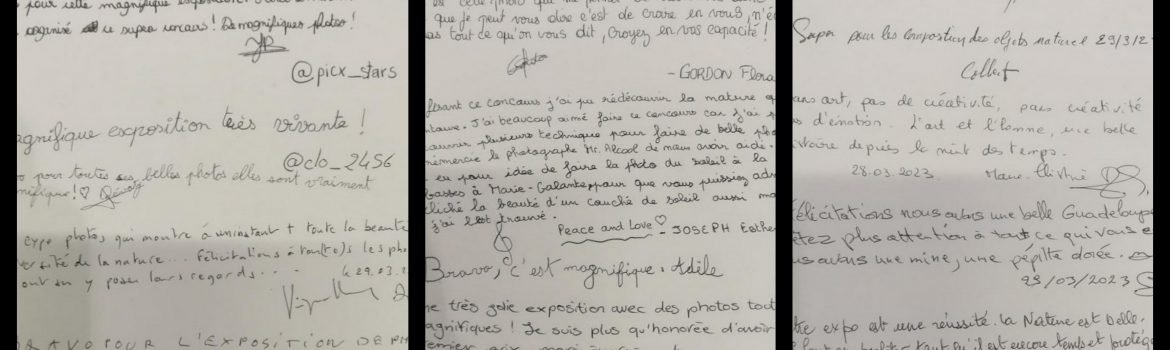 pour cette magnifique exposition!
organisé ce super concours! De magnifiques photos!
@picx_stars
agnifique exposition très vivante!
@clo_2456
pour toutes ces belles photos elles sont vraiment
nifique! ♡
type photos, qui montre à un instant + toute la beauté
versité de la nature... Félicitations à tou(te)s les pho
ont su y poser leurs regards...
le 29.03.2
BRAVO POUR L'EXPOSITION DE PH
que je peut vous dire c'est de croire en vous, n'é
as tout ce qu'on vous dit, croyez en vos capacité!
- GORDON Flora
aisant ce concours j'ai pu rédécouvrir la nature
J'ai beaucoup aimé faire ce concours car j'ai
plusieurs technique pour faire de belle pho
remercie le photographe Mr. Alcool de nous avoir aidé.
eu pour idée de faire la photo du soleil à la
basses à Marie-Galante, pour que vous puissiez adm
cliché la beauté d'un couché de soleil aussi ma
j'ai trouvé.
Peace and Love ♡ - JOSEPH Esthe
Bravo, c'est magnifique. Adèle
ne très jolie exposition avec des photos tout
agnifiques! Je suis plus qu'honorée d'avoir
Super pour les exposition des objets naturel 29/3/2
Colbert
ans art, pas de créativité, sans créativité
s d'émotion. L'art et l'homme, une belle
istoire depuis la nuit des temps.
28.03.2023
élicitations nous avons une belle Guadeloupe
êtez plus attention à tout ce qui vous e
us avons une mine, une pépite dorée.
29/03/2023
tre expo est une réussite. La Nature est belle.
tout qu'il est encore temps et protég